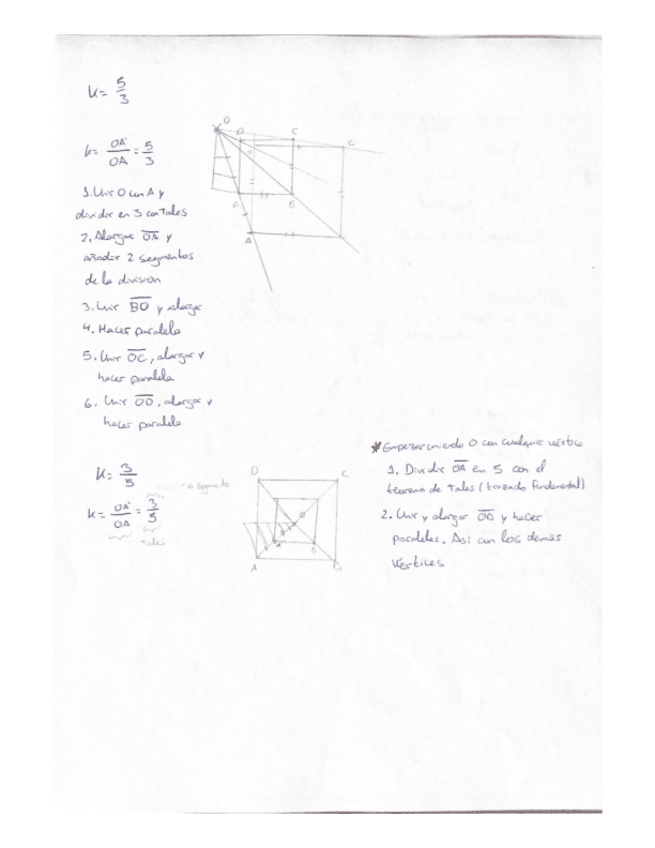 K = 5/3
K = OA'/OA = 5/3
1. Unir O con A y
dividir en 3 con tales
2. Alargar OA y
añadir 2 segmentos
de la division
3. Unir BO y alargar
4. Hacer paralela
5. Unir OC, alargar y
hacer paralela
6. Unir OD, alargar y
hacer paralela
O
D
C
C
A
B
A'
K = 3/5
K = OA'/OA = 3/5
segmento
tales
D
C
O
A
B
A
B
* Empezar uniendo O con cualquier vértice
1. Dividir OA en 5 con el
teorema de Tales (trazado fundamental)
2. Unir y alargar OD y hacer
paralelas. Así con los demás
vértices